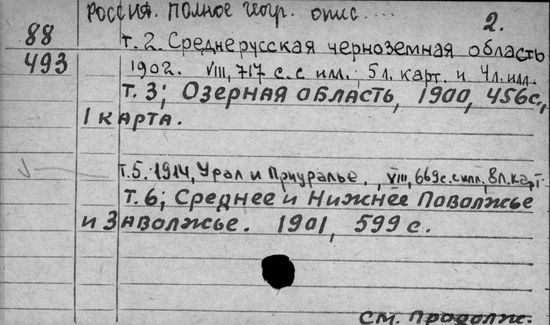 Россия. Полное геогр. опис.... 2.
88
т. 2. Среднерусская черноземная область
493
1902. VIII, 717 с. с илл. 5 л. карт. и 4 л. илл.
т. 3; Озерная область, 1900, 456 с.,
1 карта.
т. 5. 1914, Урал и Приуралье., VIII, 669 с. с илл., 8 л. карт.
Т. 6; Среднее и Нижнее Поволжье
и Заволжье. 1901, 599 с.
См. продолж.